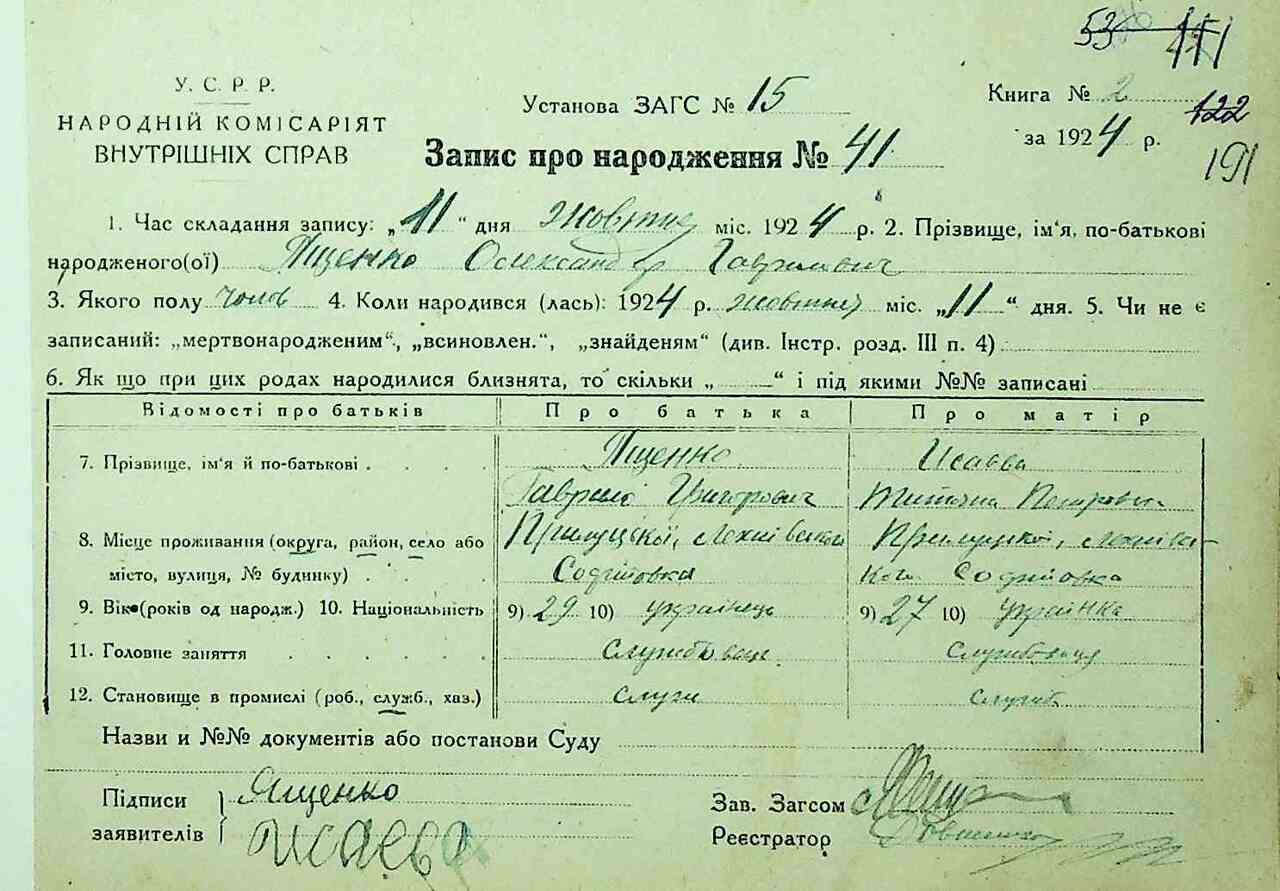 53 111
У. С. Р. Р.
НАРОДНІЙ КОМІСАРІЯТ
ВНУТРІШНІХ СПРАВ
Установа ЗАГС № 15
Книга № 2
за 1924 р.
122
191
Запис про народження № 41
1. Час складання запису: „11“ дня жовтня міс. 1924 р. 2. Прізвище, ім'я, по-батькові
народженого(ої) Ященко Олександр Гаврилович
3. Якого полу чолов 4. Коли народився (лась): 1924 р. жовтня міс. „11“ дня. 5. Чи не є
записаний: „мертвонародженим“, „всиновлен.“, „знайденям“ (див. Інстр. розд. III п. 4)
6. Як що при цих родах народилися близнята, то скільки „ “ і під якими №№ записані
Відомості про батьків Про батька Про матір
7. Прізвище, ім'я й по-батькові Ященко Исаєва
Гаврило Григорович Титяна Петровна
8. Місце проживання (округа, район, село або Прилуцької, Лохнівського Прилуцької, Лохнівсь-
місто, вулиця, № будинку) Софіїовка кого Софіїовка
9. Вік (років од народж.) 10. Національність 9) 29 10) українець 9) 27 10) українка
11. Головне заняття службовець службовиця
12. Становище в промислі (роб., служб., хаз.) служ служб
Назви и №№ документів або постанови Суду
Підписи Ященко
заявителів Исаєва
Зав. Загсом
Реєстратор